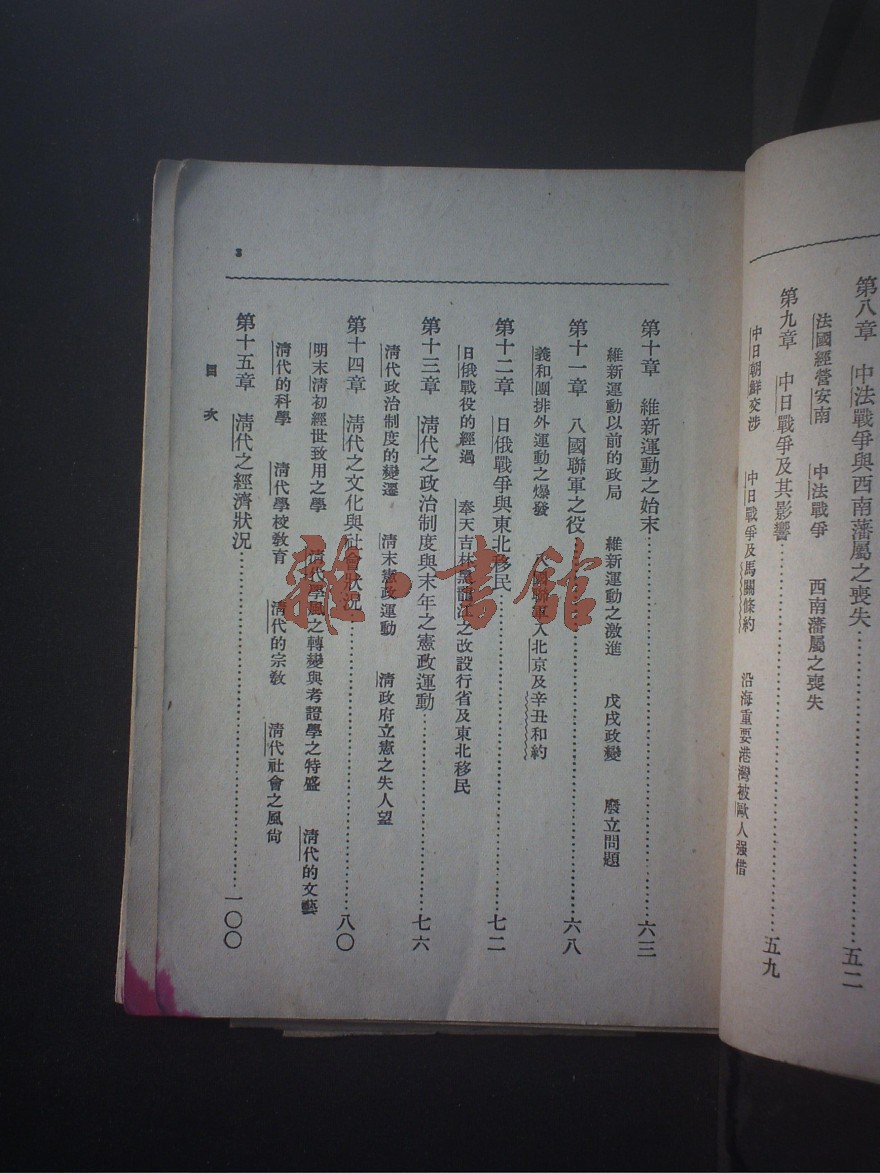 第八章　中法戰爭與西南藩屬之喪失……五二
法國經營安南　中法戰爭　西南藩屬之喪失
第九章　中日戰爭及其影響……五九
中日朝鮮交涉　中日戰爭及馬關條約　沿海重要港灣被歐人强借
第十章　維新運動之始末……六三
維新運動以前的政局　維新運動之激進　戊戌政變　廢立問題
第十一章　八國聯軍之役……六八
義和團排外運動之爆發　八國聯軍入北京及辛丑和約
第十二章　日俄戰爭與東北移民……七二
日俄戰役的經過　奉天吉林黑龍江之改設行省及東北移民
第十三章　清代之政治制度與末年之憲政運動……七六
清代政治制度的變遷　清末憲政運動　清政府立憲之失人望
第十四章　清代之文化與社會狀况……八〇
明末清初經世致用之學　清代學風之轉變與考證學之特盛　清代的文藝
清代的科學　清代學校教育　清代的宗教　清代社會之風尚
第十五章　清代之經濟狀况……一〇〇
目次
3
雜·書館